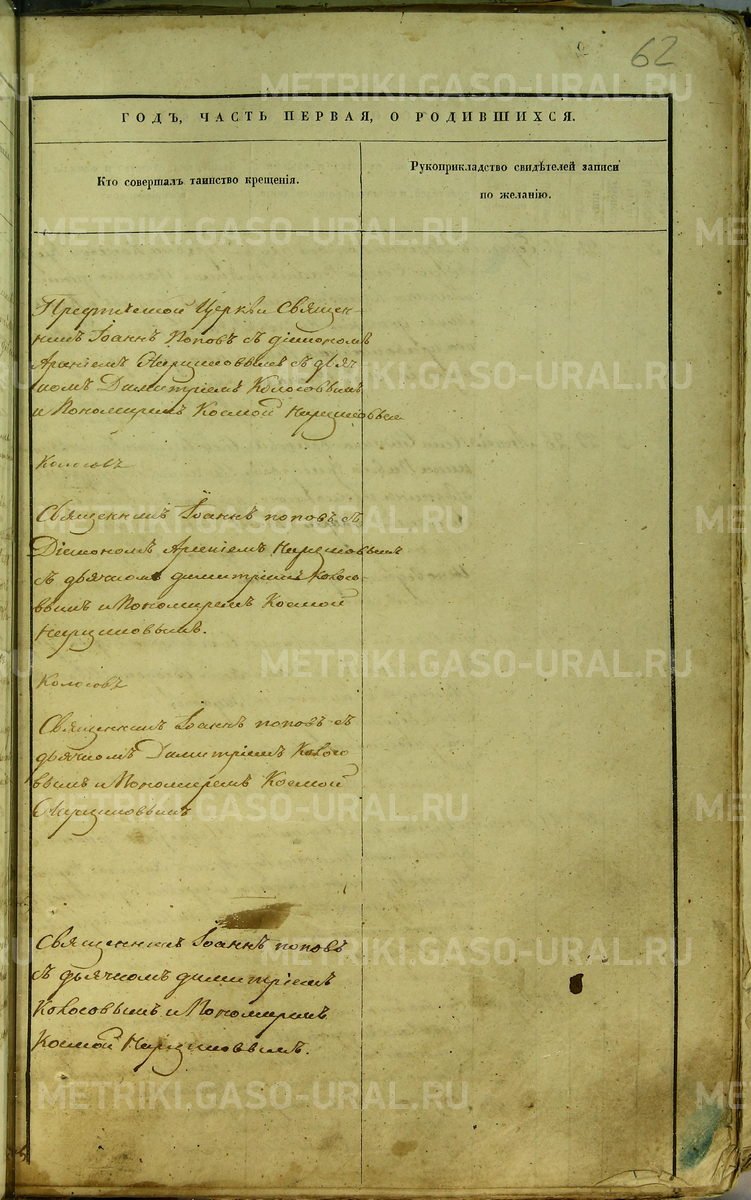 62
ГОДЪ, ЧАСТЬ ПЕРВАЯ, О РОДИВШИХСЯ.
Кто совершалъ таинство крещенія.
Рукоприкладство свидѣтелей записи
по желанію.
Предтечевой Церкви Священ-
никъ Іоаннъ Поповъ съ діакономъ
Арсеніемъ съ дьяч-
комъ Димитріемъ Колосовымъ
и Пономаремъ Космой
Колосовъ
Священникъ Іоаннъ поповъ съ
Діакономъ Арсеніемъ
съ дьячкомъ димитріемъ Колосо-
вымъ и Пономаремъ Космой
Колосовъ
Священникъ Іоаннъ поповъ съ
дьячкомъ Димитріемъ Колосо
вымъ и Пономаремъ Космой
Священникъ Іоаннъ поповъ
съ дьячкомъ димитріемъ
Колосовымъ и Пономаремъ
Космой
METRIKI.GASO-URAL.RU